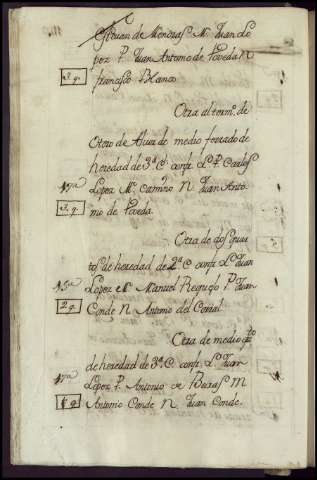 Estevan de Mendras M. Juan Lo
pez P. Juan Antonio de Poveda N
francisco Blanco
3 q.
Otra al termo. de
Otero de Alvar de medio ferrado de
heredad de 3ª C confi. L. P. Carlos
Lopez M. Camino N Juan Anto
nio de Poveda.
3 q.
Otra de dos quar
tos de heredad de 2ª C confi. L. Juan
Lopez M. Manuel Requejo P. Juan
Conde N Antonio del Corral
2 q.
Otra de medio qto
de heredad de 3ª C confi. L. Juan
Lopez P. Antonio de M
Antonio Conde N Juan Conde
1 q.